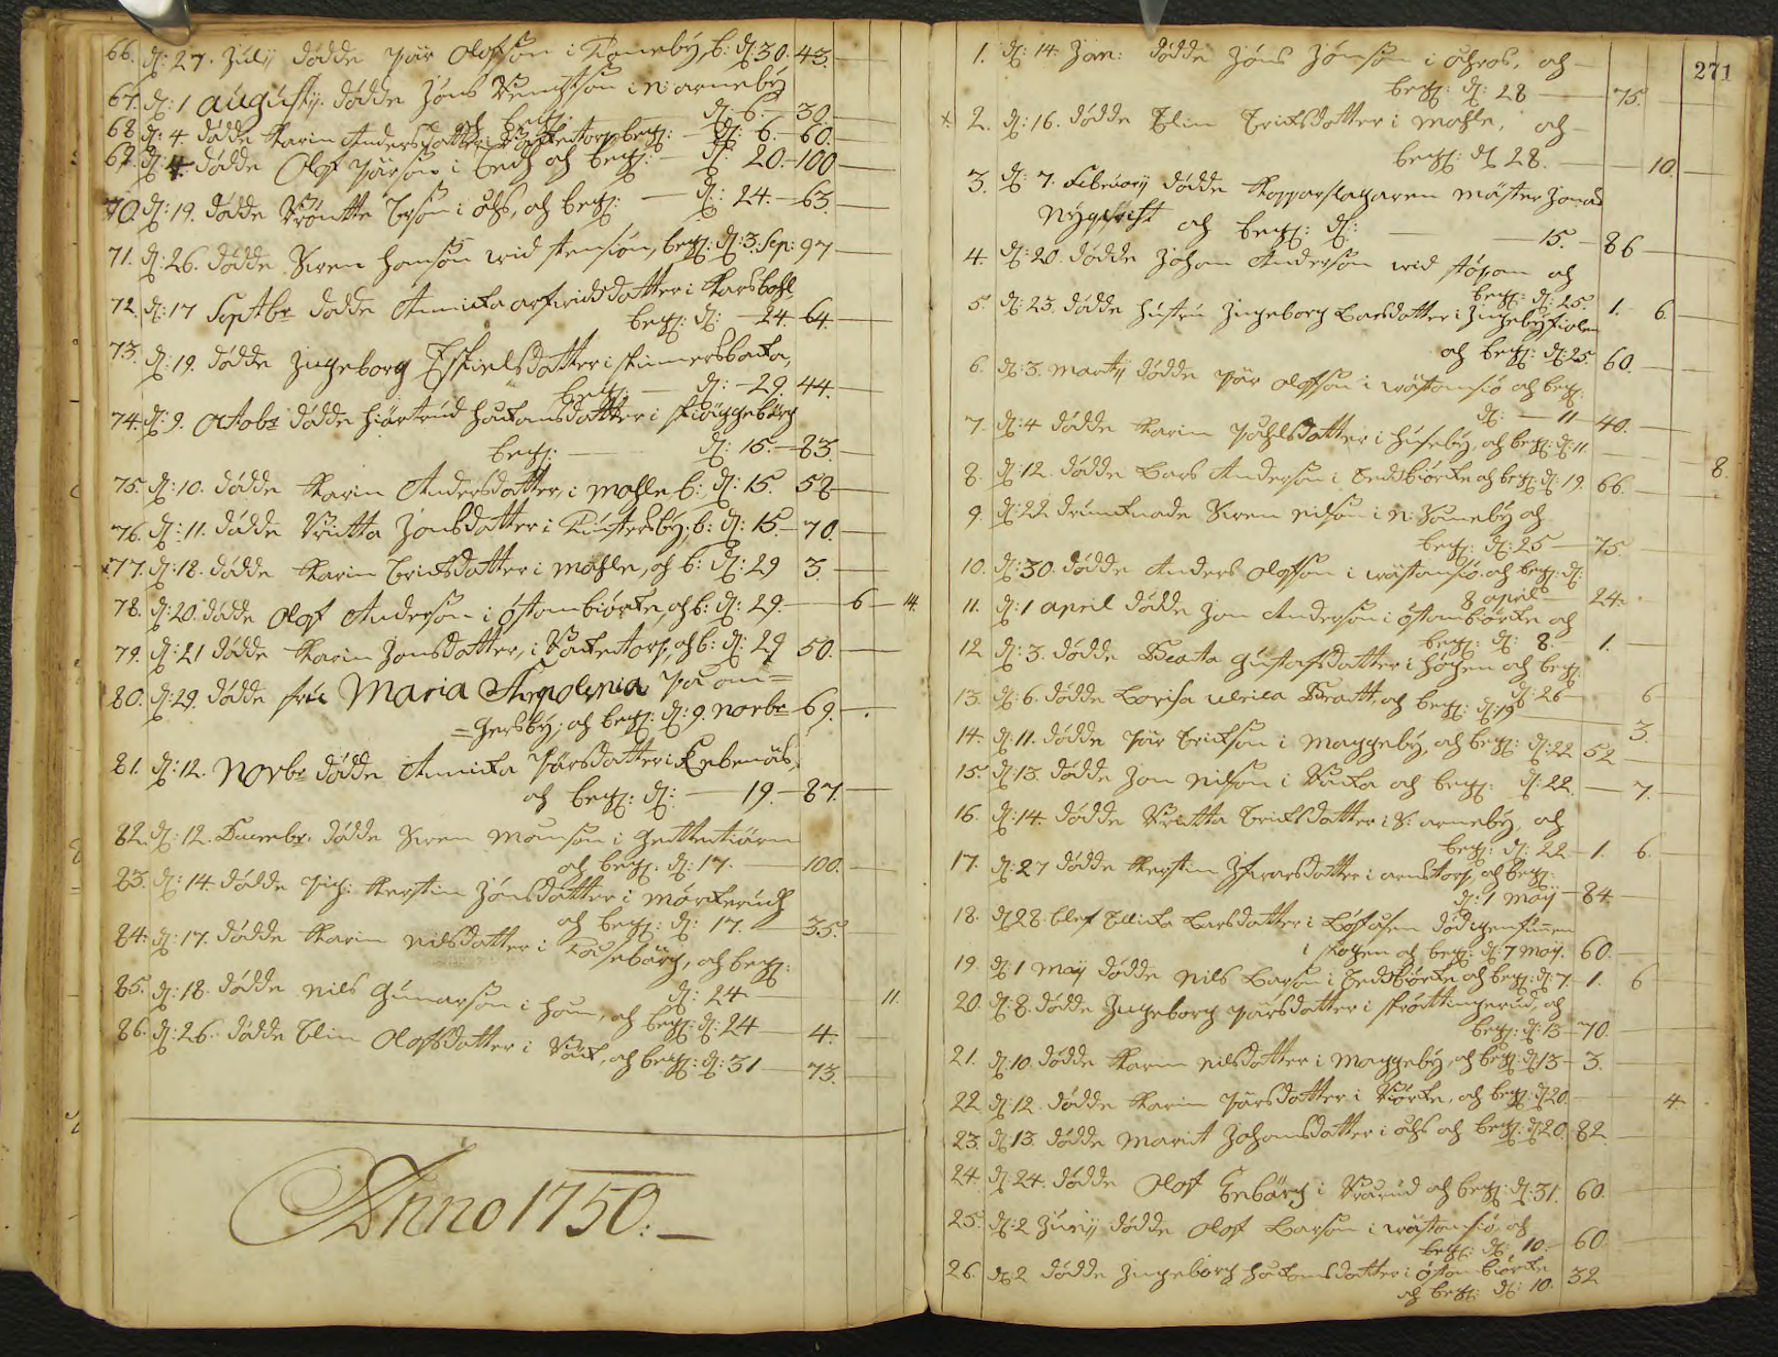 66. d: 27. Julij dödde Pär Olofson i Tomeby, b: d: 30. 43.
67. d: 1 Augustij. dödde Jöns i N: arneby
och begr: d: 6. 30.
68. d: 4. dödde Karin Andersdatter i begr: d: 6. 60.
69. d: 4. dödde Olof Pärson i och begr: d: 20. 100
70. d: 19. dödde i åhs, och begr: d: 24. 63.
71. d: 26. dödde Swen Hanson wid begr: d: 3. Sep: 97
72. d: 17 Septbr dödde Annicka arfwidsdatter i Karsbohl,
begr: d: 24. 64.
73. d: 19. dödde Ingeborg Eskielsdatter i skinnersbacka,
begr: d: 29. 44.
74. d: 9. Octobr dödde Håckansdatter i
begr: d: 15. 83.
75. d: 10. dödde Karin Andersdatter i Mohle, b: d: 15. 58
76. d: 11. dödde Britta Jonsdatter i b: d: 15. 70.
77. d: 18. dödde Karin Ericksdatter i Mohle, och b: d: 29 3.
78. d: 20. dödde Olof Anderson i östanbiörke, och b: d: 29. 6 14.
79. d: 21 dödde Karin Jonsdatter, i och b: d: 29 50.
80. d: 29. dödde fru Maria Appolonia
=gersby, och begr: d: 9. Norbr 69.
81. d: 12. Norbr dödde Annicka Pärsdatter i Enbenäs,
och begr: d: 19. 87.
82. d: 12. Decembr. dödde Swen Monson i
och begr: d: 17. 100.
83. d: 14. dödde Pig: Kerstin Jönsdatter i
och begr: d: 17. 35.
84. d: 17. dödde Karin Nilsdatter i och begr:
d: 24 11.
85. d: 18. dödde Nils Gunnarson i och begr: d: 24 4.
86. d: 26. dödde Elin Olofsdatter i och begr: d: 31 73.
Anno 1750.
271
1. d: 14. Jan: dödde Jöns Jönson i och
begr: d: 28 75.
2. d: 16. dödde Elin Ericksdatter i Mohle, och
begr: d 28. 10.
3. d: 7. Februarij dödde Kopparslagaren Mäster Jonas
Nyqvist och begr: d: 15. 86
4. d: 20. dödde Johan Anderson wid och
begr: d: 25. 1. 6.
5. d: 23. dödde Hustru Ingeborg Larsdatter i
och begr: d: 25. 60.
6. d: 3. Martij dödde Pär Olofson i wästansiö och begr:
d: 11 40.
7. d: 4 dödde Karin Påhlsdatter i Huseby, och begr: d: 11. 8.
8. d: 12. dödde Lars Anderson i och begr: d: 19. 66.
9. d: 22. drunknade Swen Nilson i N: Someby och
begr: d: 25 75.
10. d: 30. dödde Anders Olofson i wästansiö. och begr: d:
8 april 24.
11. d: 1 april dödde Jon Anderson i östanbiörke och
begr: d: 8. 1.
12. d: 3. dödde Beata Gustafsdatter i högen och begr:
d: 26 6
13. d: 6. dödde Lovisa Ulrica Bratt, och begr: d: 19 3.
14. d: 11. dödde Pär Erickson i Maggeby, och begr: d: 22 52
15. d: 13. dödde Jon Nilson i Backa och begr: d: 22. 7.
16. d: 14. dödde Britta Ericksdatter i S: arneby, och
begr: d: 22. 1. 6.
17. d: 27 dödde Kerstin Ifwarsdatter i arnstorp, och begr:
d: 1 Maij 84.
18. d: 28. blef Ellicka Larsdatter i Löfåsen död igenfunnen
i skogen och begr: d: 7 Maij. 60.
19. d: 1 Maij dödde Nils Larson i och begr: d: 7. 1. 6
20. d: 8. dödde Ingeborg Pärsdatter i och
begr: d: 13 70.
21. d: 10. dödde Karin Nilsdatter i Maggeby, och begr: d: 13 3.
22. d: 12. dödde Karin Pärsdatter i Biörke, och begr: d: 20. 4
23. d: 13. dödde Marit Johansdatter i åhs och begr: d: 20. 82.
24. d: 24. dödde Olof Enbärg i och begr: d: 31. 60.
25. d: 2 Junij dödde Olof Larson i wästansiö, och
begr: d: 10. 60.
26. d: 2 dödde Ingeborg Håckansdatter i östanbiörke
och begr: d: 10. 32